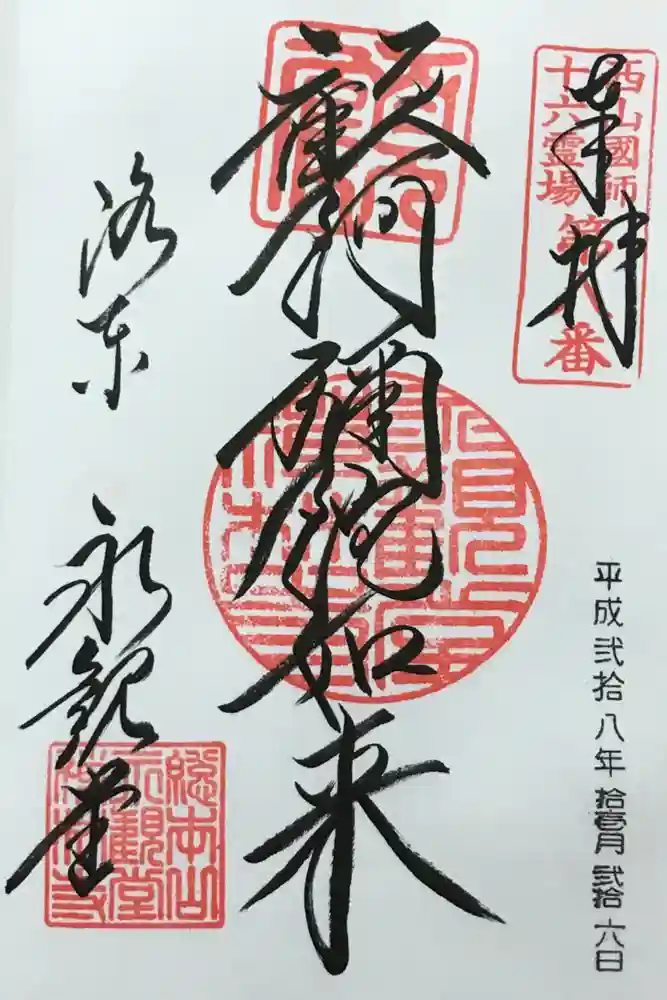 奉拝
西山國師
十六霊場
第八番
平成弐拾八年拾壹月弐拾六日
顧阿彌陀如来
洛東 永観堂
総本山
永觀堂
禅林寺